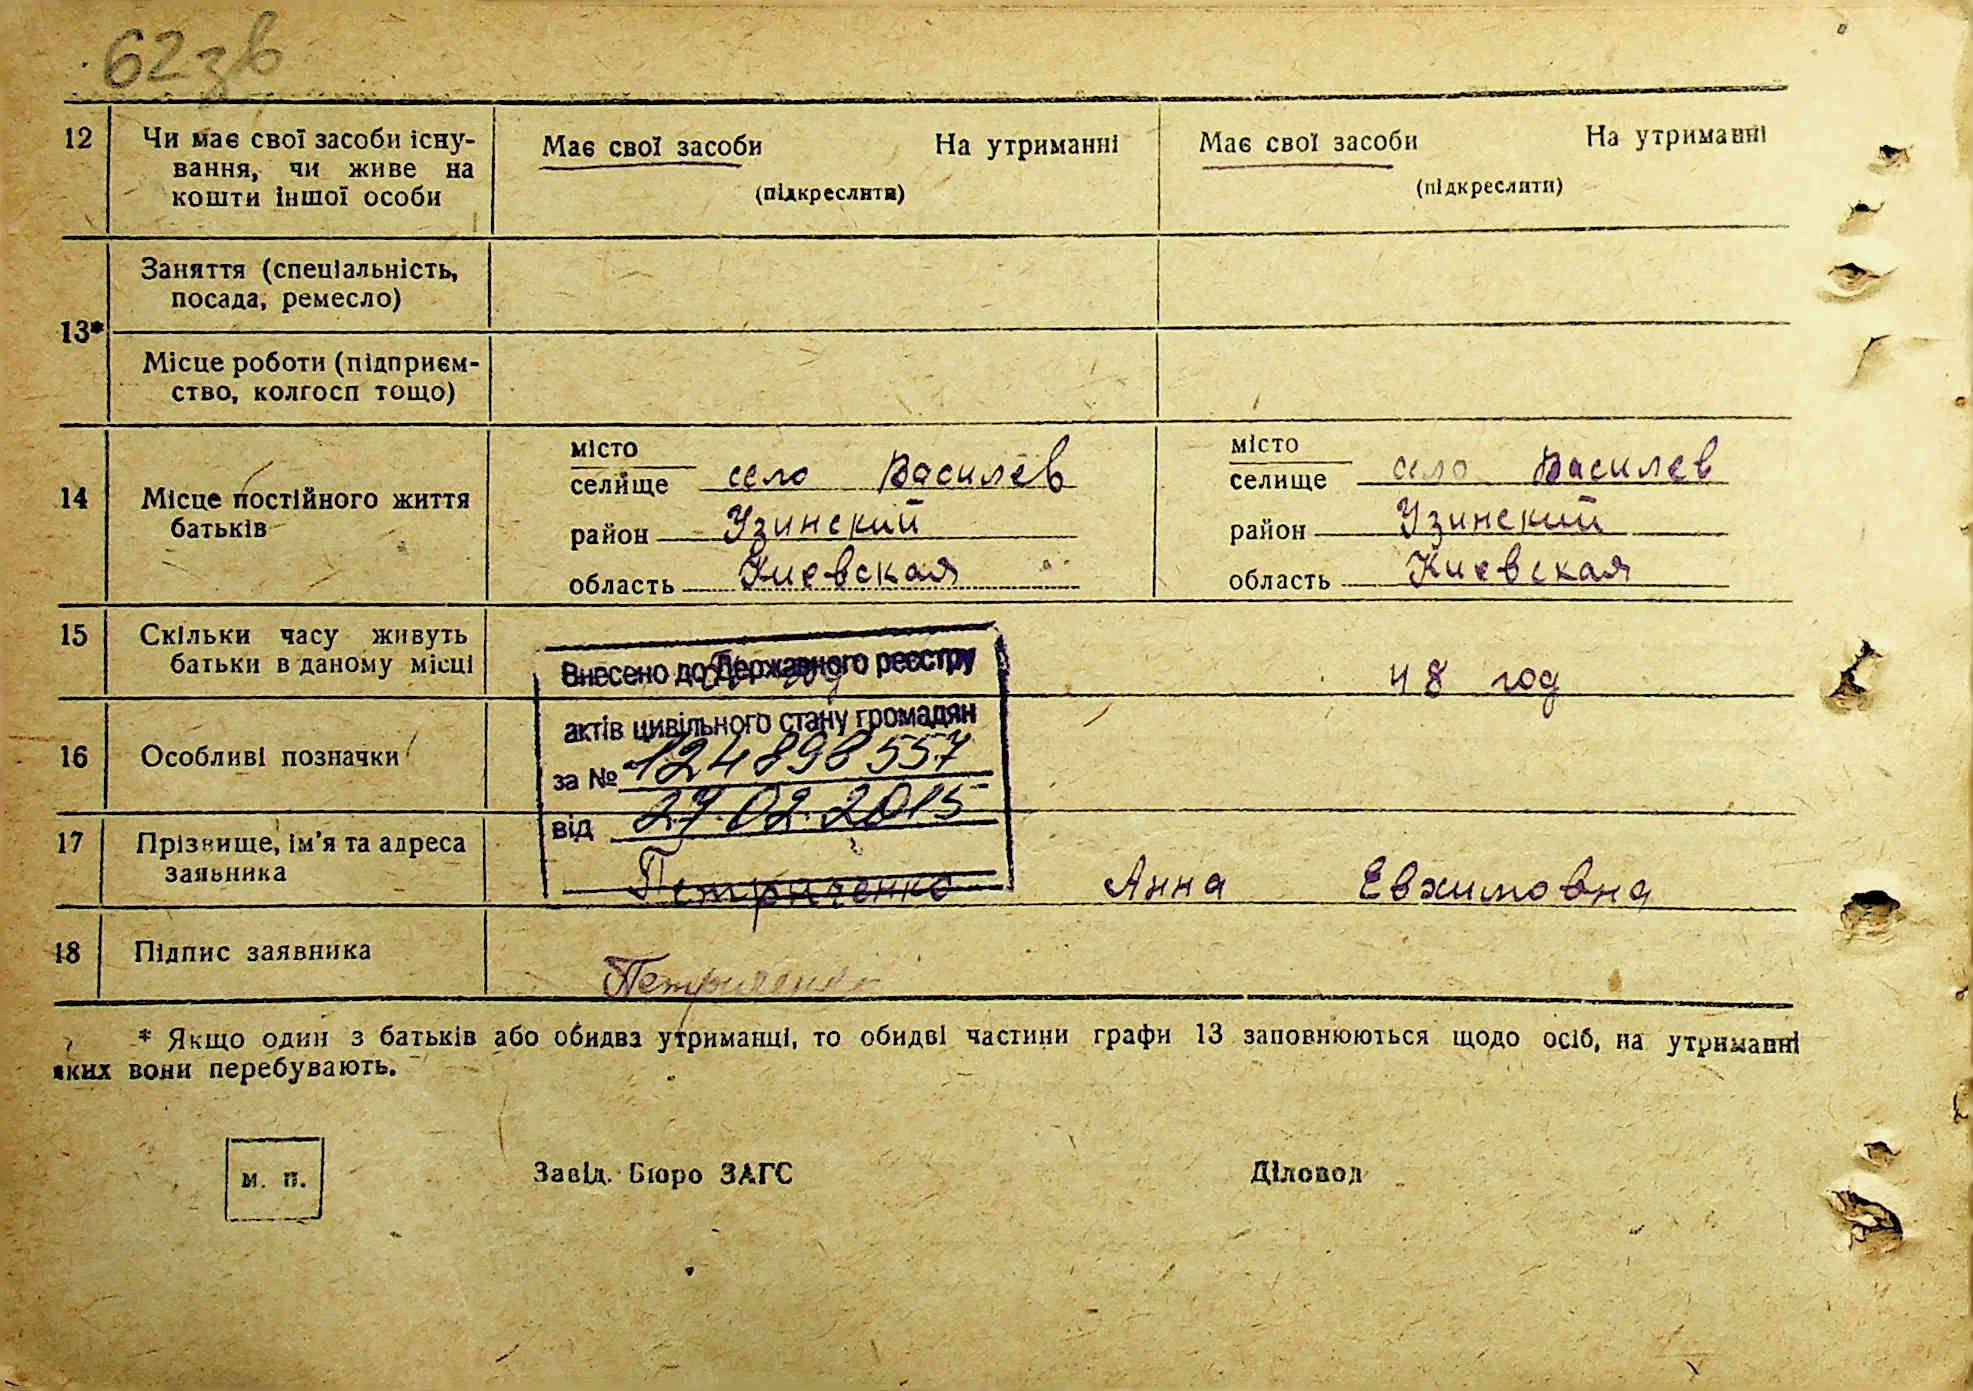 62зв
12 Чи має свої засоби існу- Має свої засоби На утриманні Має свої засоби На утриманні
вання, чи живе на (підкреслити) (підкреслити)
кошти іншої особи
Заняття (спеціальність,
посада, ремесло)
13*
Місце роботи (підприєм-
ство, колгосп тощо)
місто місто
14 Місце постійного життя селище село Василев селище село Василев
батьків район Узинский район Узинский
область Киевская область Киевская
15 Скільки часу живуть Внесено до Державного реєстру
батьки в даному місці 48 год
актів цивільного стану громадян
16 Особливі позначки за № 124898557
17 Прізвище, ім'я та адреса від 27.02.2015
заявника Петриченко Анна Евхимовна
18 Підпис заявника Петриченк
* Якщо один з батьків або обидва утриманці, то обидві частини графи 13 заповнюються щодо осіб, на утриманні
яких вони перебувають.
м. п. Завід. Бюро ЗАГС Діловод